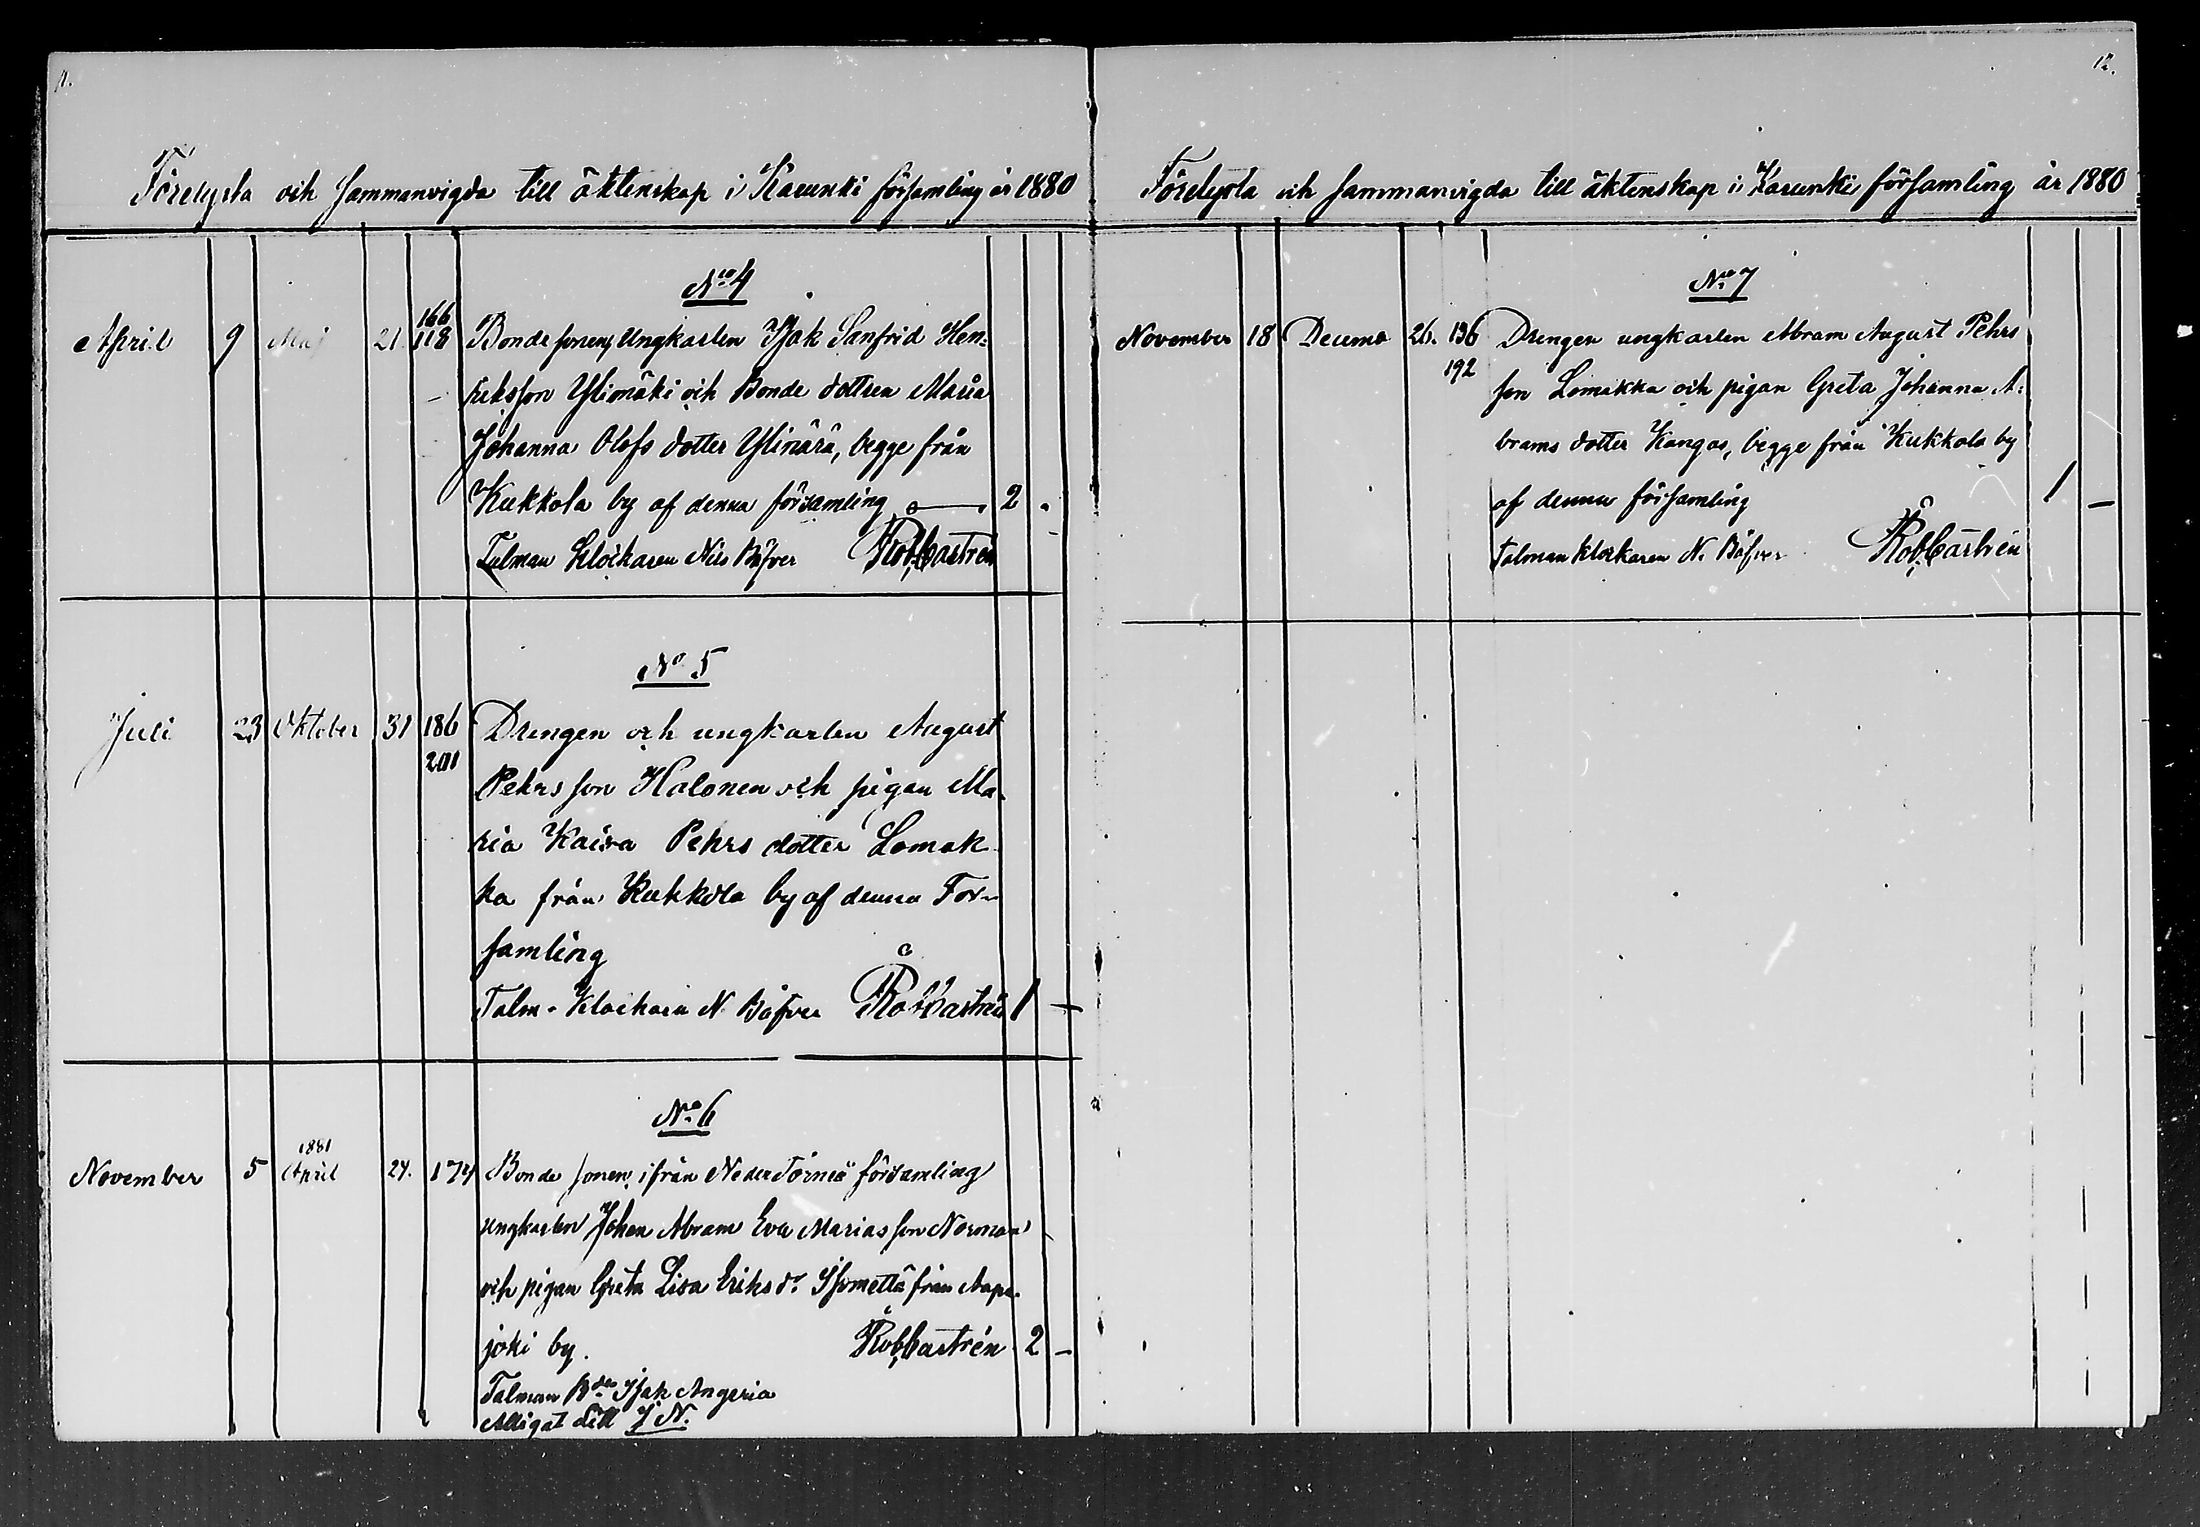 11.
Förelysta och sammanvigda till äktenskap i Karunki församling år 1880
No 4
April 9 Maj 21. 166 118 Bondesonen, Ungkarlen Isak Sanfrid Hen-
riksson Ylimäki och Bonde dottren Maria
Johanna Olofs dotter Ylinärä, begge från
Kukkola by af denna församling 2 -
Talman Klockaren Nils Bäfver Rob. Castrén
No 5
Juli 23 Oktober 31 186 201 Drengen och ungkarlen August
Pehrsson Halonen och pigan Ma-
ria Kaisa Pehrs dotter Lomak
ka från Kukkola by af denna För-
samling
Talm. Klockarn N. Bäfver Rob Castrén 1 -
No 6
November 5 1881 April 24. 174 Bonde sonen ifrån Neder Torneå församling
ungkarlen Johan Abram Eva Marias son Norman
och pigan Greta Lisa Eriks dr Isometsä från Aapa-
joki by. Rob. Castrén 2 -
Talman Bden Isak Angeria
Alligat Litt J N.
12.
Förelysta och sammanvigda till äktenskap i Karunki församling år 1880
No 7
November 18 Decemb 26. 196 192 Drengen ungkarlen Abram August Pehrs
son Lomakka och pigan Greta Johanna A-
brams dotter Kangas, begge från Kukkola by
af denna församling 1 -
Talman klockaren N. Bäfver Rob. Castrén